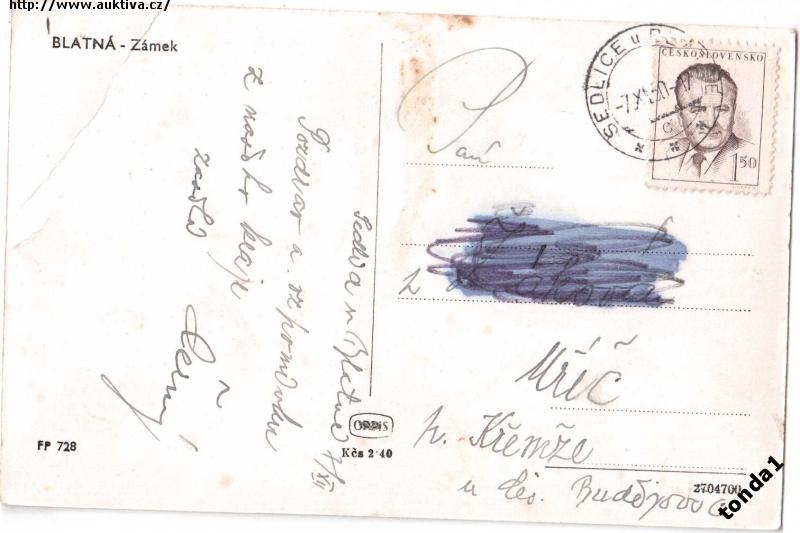 http://www.auktiva.cz/
BLATNÁ - Zámek
SEDLICE u B
-7.XII.50-
c
ČESKOSLOVENSKO
1 50
Pozdrav a vzpomínku
z našeho kraje
zasílá
Černý
Paní
Mříč
p. Křemže
u Čes. Budějovic
ORBIS
Kčs 2·40
FP 728
2704700
tonda1